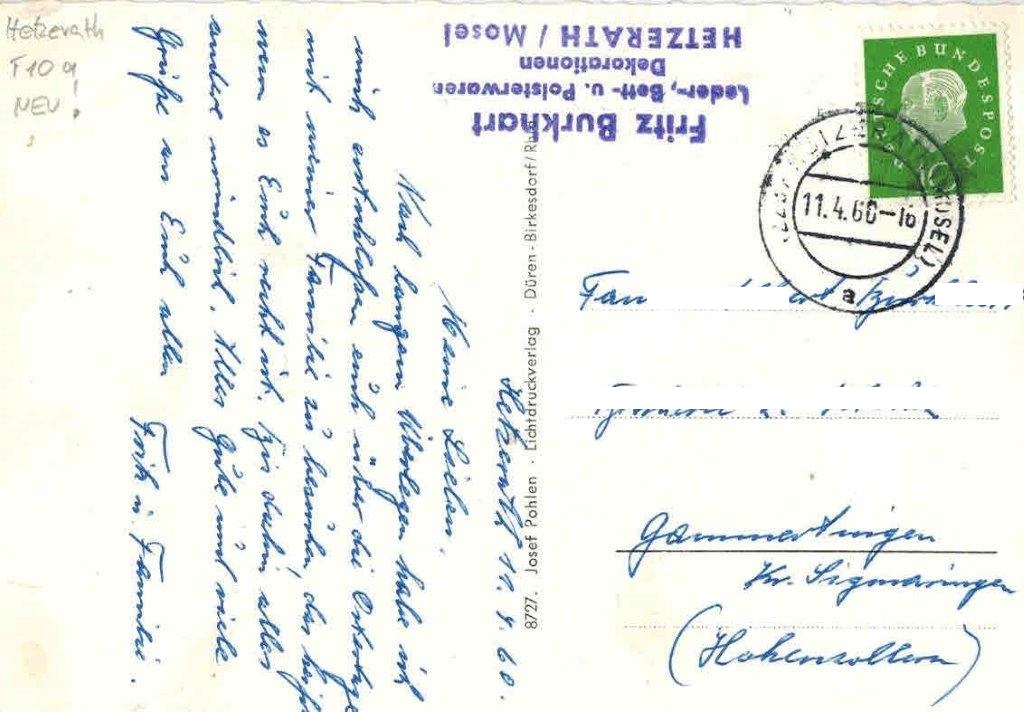 Hetzerath
F 10 a
NEU!
Fritz Burkhart
Leder-, Bett- u. Polsterwaren
Dekorationen
HETZERATH / Mosel
DEUTSCHE BUNDESPOST
11.4.60-16
(MOSEL)
a
Hetzerath 11.4.60.
Meine Lieben,
Nach langem Überlegen habe ich
mich entschloßen euch über die Ostertage
mit meiner Familie zu besuchen, das heißt
wenn es Euch recht ist. Bis dahin alles
andere mündlich. Alles Gute und viele
Grüße an Euch allen
Fritz u. Familie.
8727. Josef Pohlen · Lichtdruckverlag · Düren-Birkesdorf/
Fam
Gammertingen
Kr. Sigmaringen
(Hohenzollern)